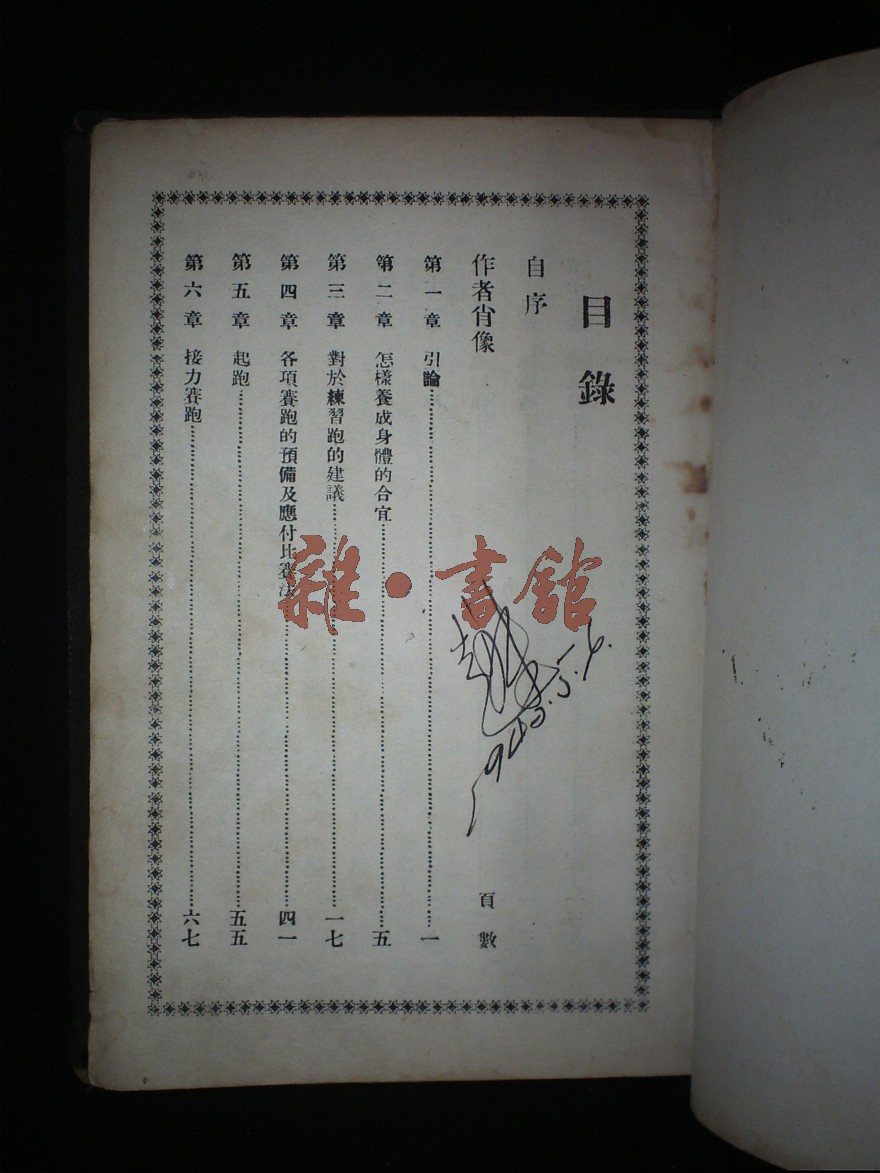 目錄
自序
作者肖像
頁數
第一章 引論……一
第二章 怎樣養成身體的合宜……五
第三章 對於練習跑的建議……一七
第四章 各項賽跑的預備及應付比賽法……四一
第五章 起跑……五五
第六章 接力賽跑……六七
雜·書館